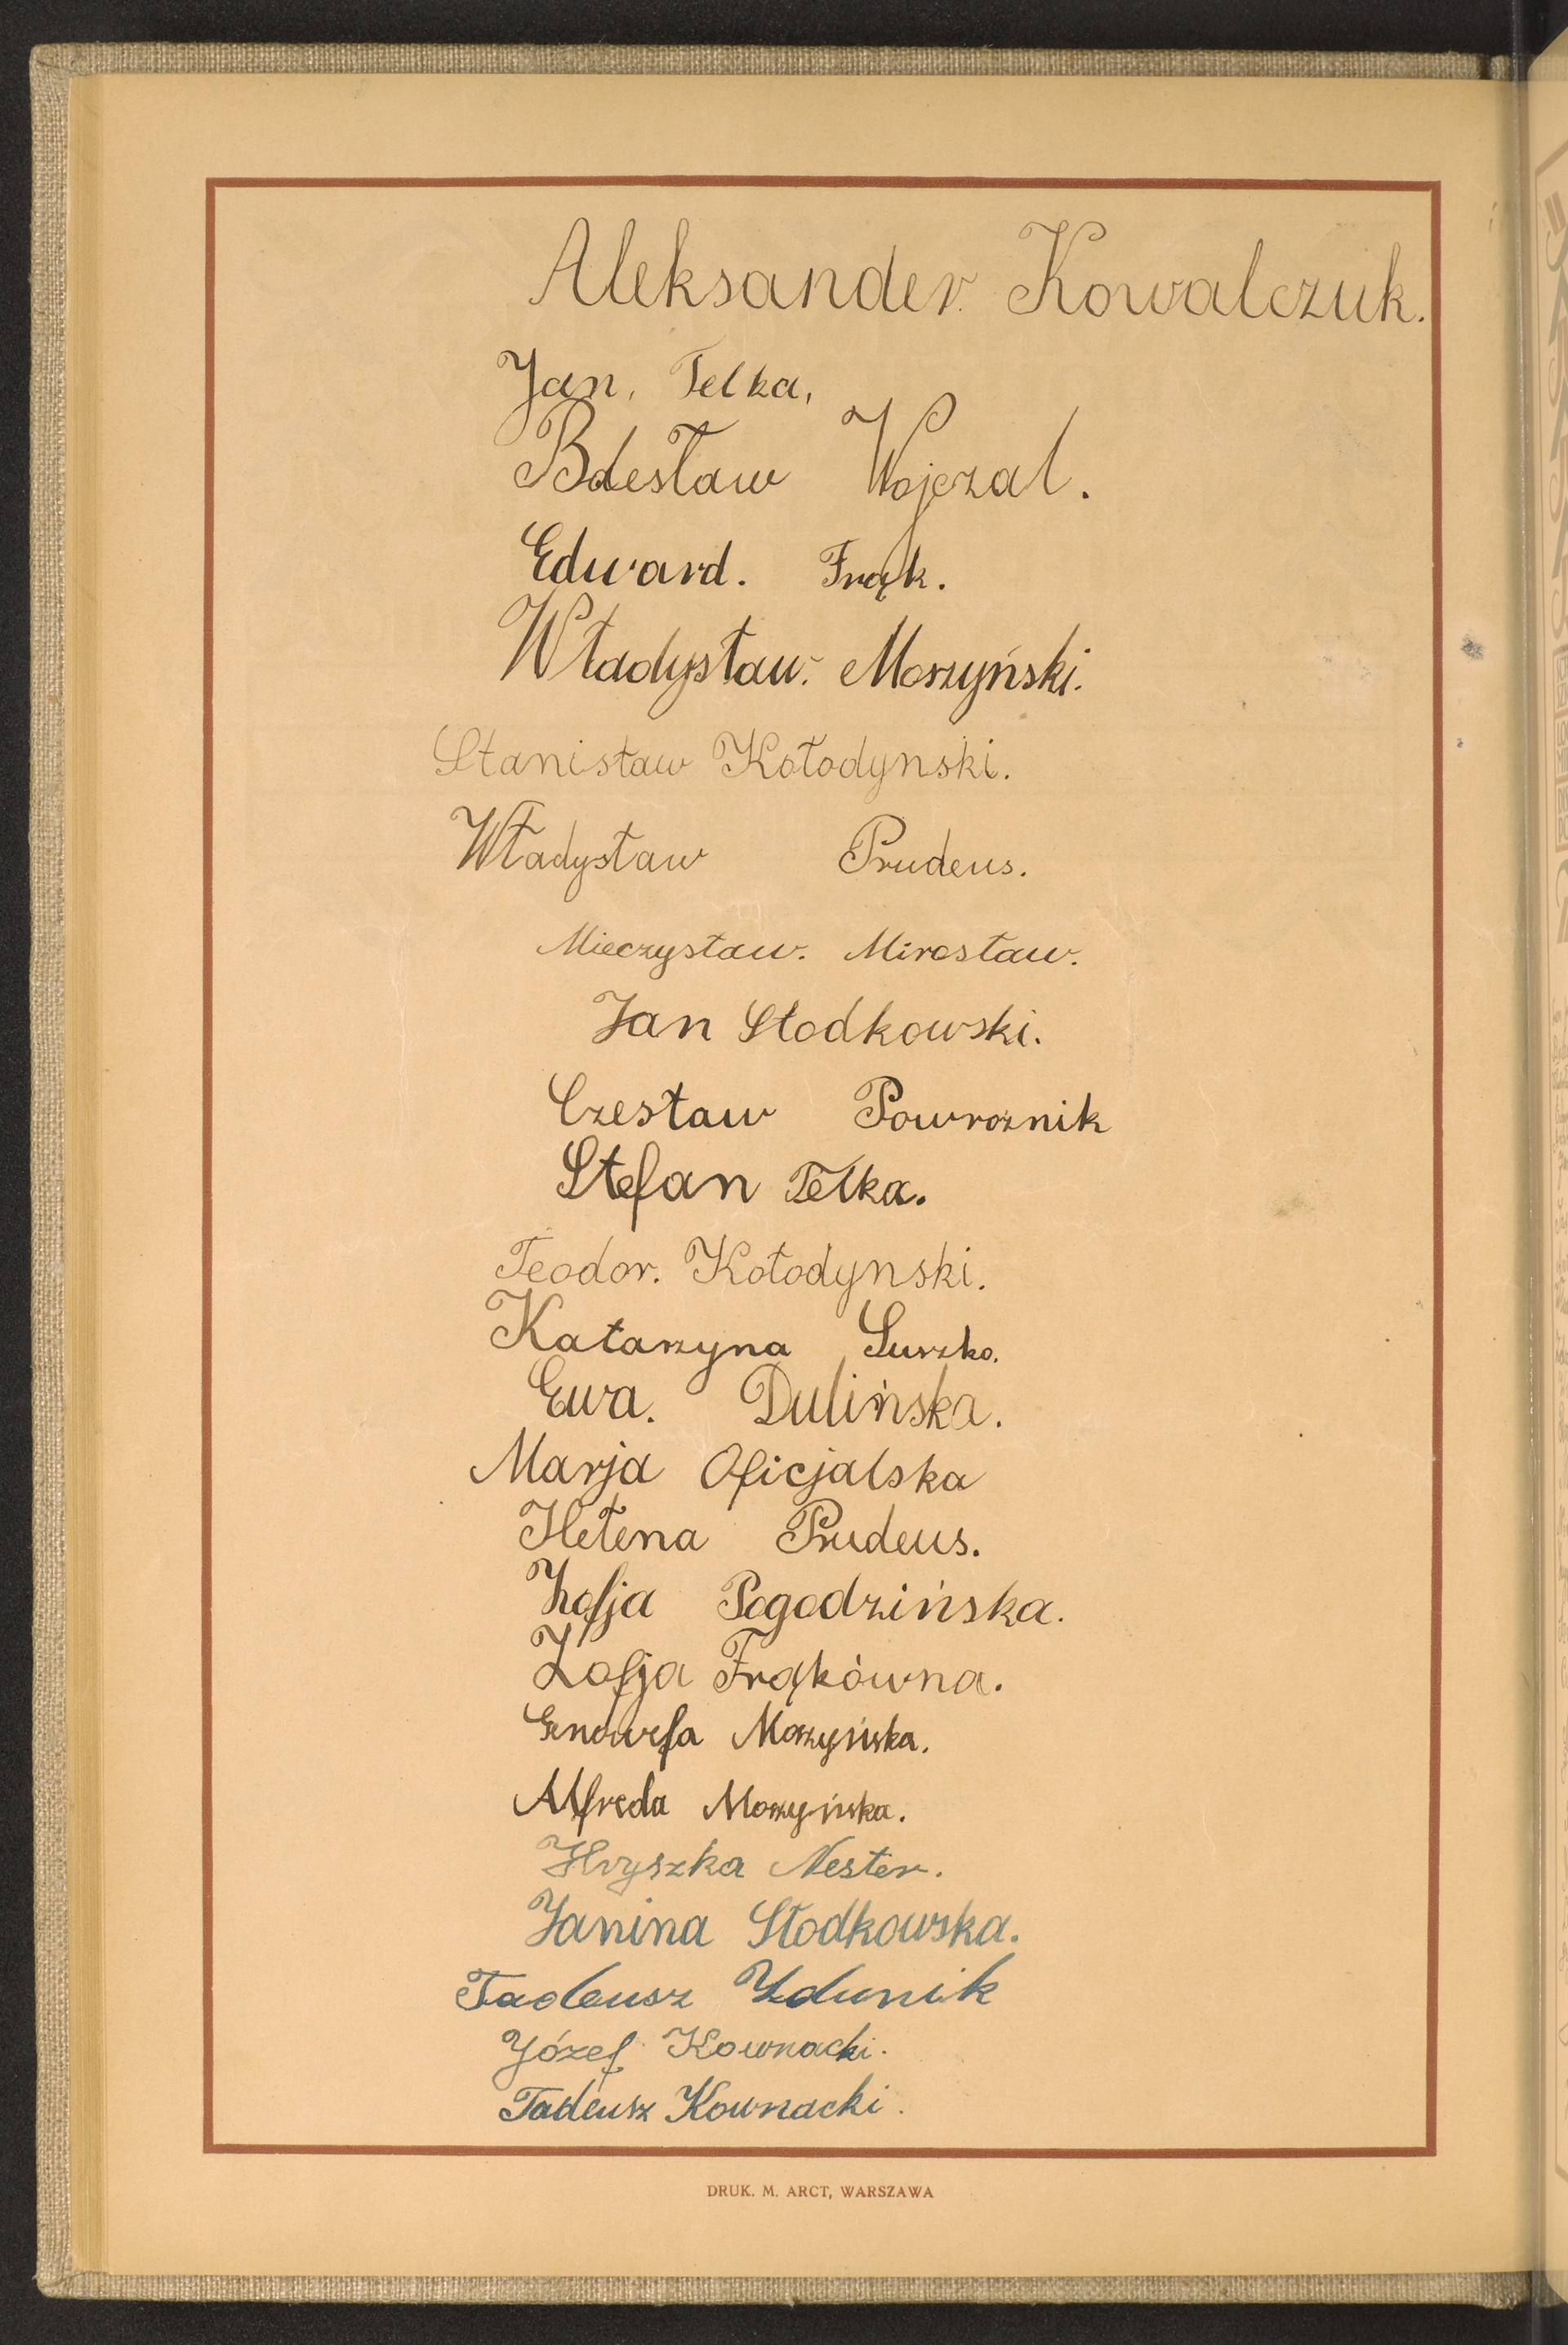 Aleksander. Kowalczuk.
Jan, Telka,
Bolesław Wojczal.
Edward. Frąk.
Władysław. Morzyński.
Stanisław Kołodynski.
Władysław Prudeus.
Mieczysław. Mirosław.
Jan Słodkowski.
Czesław Powroznik
Stefan Telka.
Teodor. Kołodynski.
Katarzyna Suszko.
Ewa. Dulińska.
Marja Oficjalska
Helena Prudeus.
Zofja Pogodzińska.
Zofja Frąkówna.
Genowefa Morzyńska.
Alfreda Morzyńska.
Hryszka Nester.
Janina Słodkowska.
Tadeusz Zdunik
Józef Kownacki.
Tadeusz Kownacki.
DRUK. M. ARCT, WARSZAWA